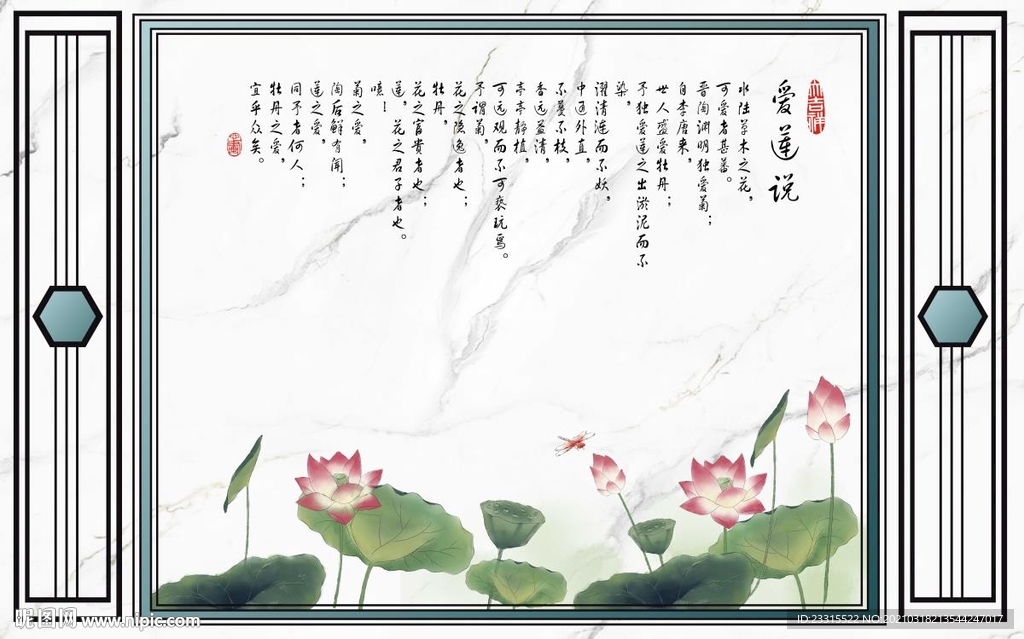 爱莲说
水陆草木之花，
可爱者甚蕃。
晋陶渊明独爱菊；
自李唐来，
世人盛爱牡丹；
予独爱莲之出淤泥而不
染，
濯清涟而不妖，
中通外直，
不蔓不枝，
香远益清，
亭亭静植，
可远观而不可亵玩焉。
予谓菊，
花之隐逸者也；
牡丹，
花之富贵者也；
莲，花之君子者也。
噫！
菊之爱，
陶后鲜有闻；
莲之爱，
同予者何人；
牡丹之爱，
宜乎众矣。
昵图网 www.nipic.com
ID:23315522 NO:20210318213544247017